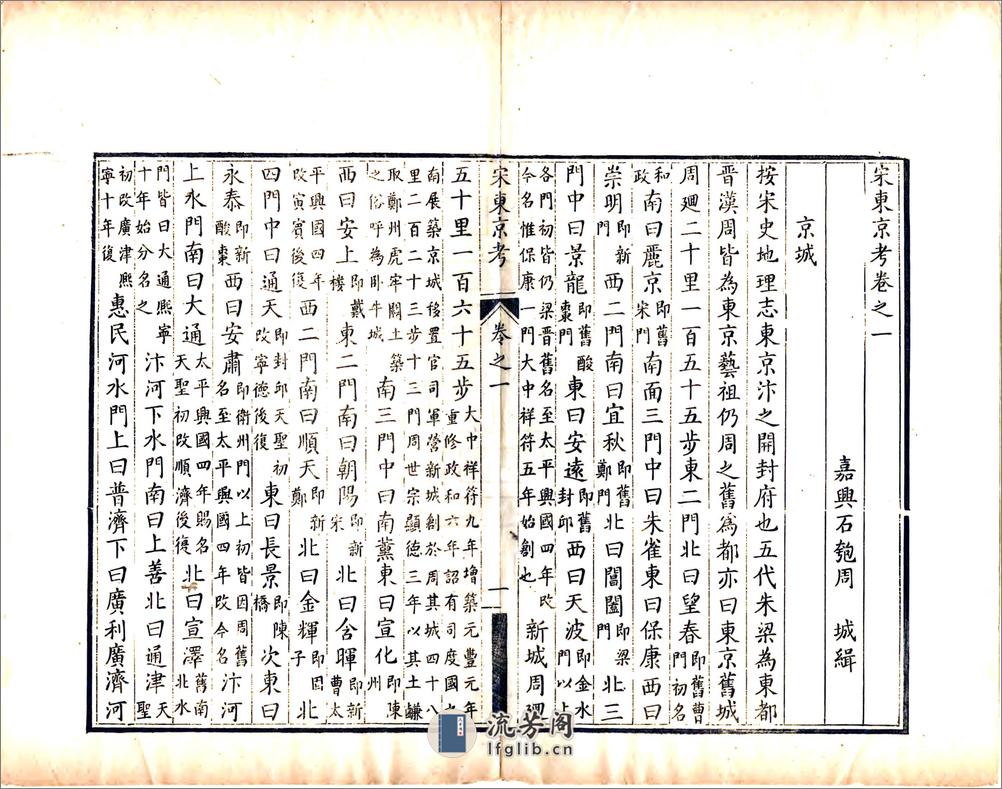 宋東京考卷之一
嘉興石匏周 城緝
京城
按宋史地理志東京汴之開封府也五代朱梁為東都
晉漢周皆為東京藝祖仍周之舊為都亦曰東京舊城
周廻二十里一百五十五步東二門北曰望春即舊曹門初名
和政南曰麗京即舊宋門南面三門中曰朱雀東曰保康西曰
崇明即新門西二門南曰宜秋即舊鄭門北曰閶闔即梁門北三
門中曰景龍即舊酸棗門東曰安遠即舊封邱西曰天波即金水門以上
各門初皆仍梁晉舊名至太平興國四年改今名惟保康一門大中祥符五年始創也新城周廻
宋東京考 卷之一 一
五十里一百六十五步大中祥符九年增築元豐元年重修政和六年詔有司度國之
南展築京城移置官司軍營新城創於周其城四十八里二百二十三步十三門周世宗顯德三年以其土鹻
取鄭州虎牢關土築之俗呼為卧牛城南三門中曰南薰東曰宣化即陳州
西曰安上即戴樓東二門南曰朝陽即新宋北曰含暉即新曹太
平興國四年改寅賓後復西二門南曰順天即新鄭北曰金輝即固子北
四門中曰通天即封邱天聖初改寧德後復東曰長景即陳橋次東曰
永泰即新酸棗西曰安肅即衛州門以上初皆因周舊名至太平興國四年改今名汴河
上水門南曰大通太平興國四年賜名天聖初改順濟後復北曰宣澤舊南北水
門皆曰大通熙寧十年始分名之汴河下水門南曰上善北曰通津天聖
初改廣津熙寧十年復惠民河水門上曰普濟下曰廣利廣濟河
流芳阁
lfglib.cn